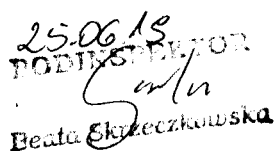 25.06.15
PODINSPEKTOR
Beata Skrzeczkowska